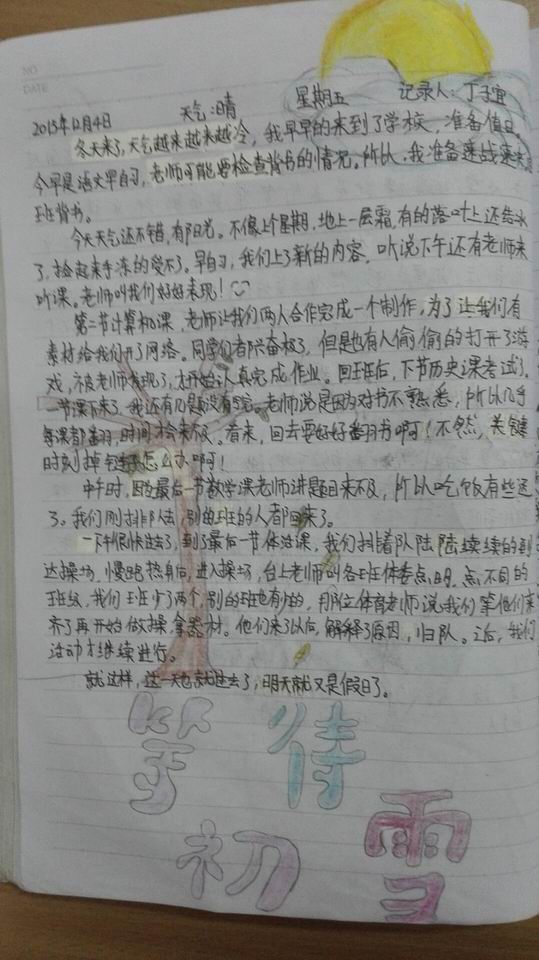 NO
DATE
2015年12月4日 天气:晴 星期五 记录人:丁子宜
冬天来了,天气越来越来越冷,我早早的来到了学校,准备值日。
今早是语文早自习,老师可能要检查背书的情况。所以,我准备速战速决
班背书。
今天天气还不错,有阳光。不像上个星期,地上一层霜,有的落叶上还结冰
了,捡起来手冻的受不了。早自习,我们上了新的内容,听说下午还有老师来
听课。老师叫我们好好表现!
第二节计算机课,老师让我们两人合作完成一个制作,为了让我们有
素材给我们开了网络。同学们都兴奋极了,但是也有人偷偷的打开了游
戏,被老师发现了,才开始认真完成作业。回班后,下节历史课考试了。
一节课下来了,我还有几题没有写完。老师说是因为对书不熟悉,所以几乎
每课都翻,时间才会来不及。看来,回去要好好翻翻书啊!不然,关键
时刻掉链子怎么办啊!
中午时,因为最后一节数学课老师讲题目来不及,所以吃饭有些迟
了。我们刚排队去,别的班的人都回来了。
一下午很快过去了,到了最后一节体活课,我们排着队陆陆续续的到
达操场,慢跑热身后,进入操场,台上老师叫各班体委点明,点不同的
班级,我们班少了两个,别的班也有少的,所以体育老师说我们等他们来
齐了再开始做操拿器材。他们来了以后,解释了原因,归队。之后,我们
活动才继续进行。
就这样,这一天也就过去了,明天就又是假日了。
等待
初雪